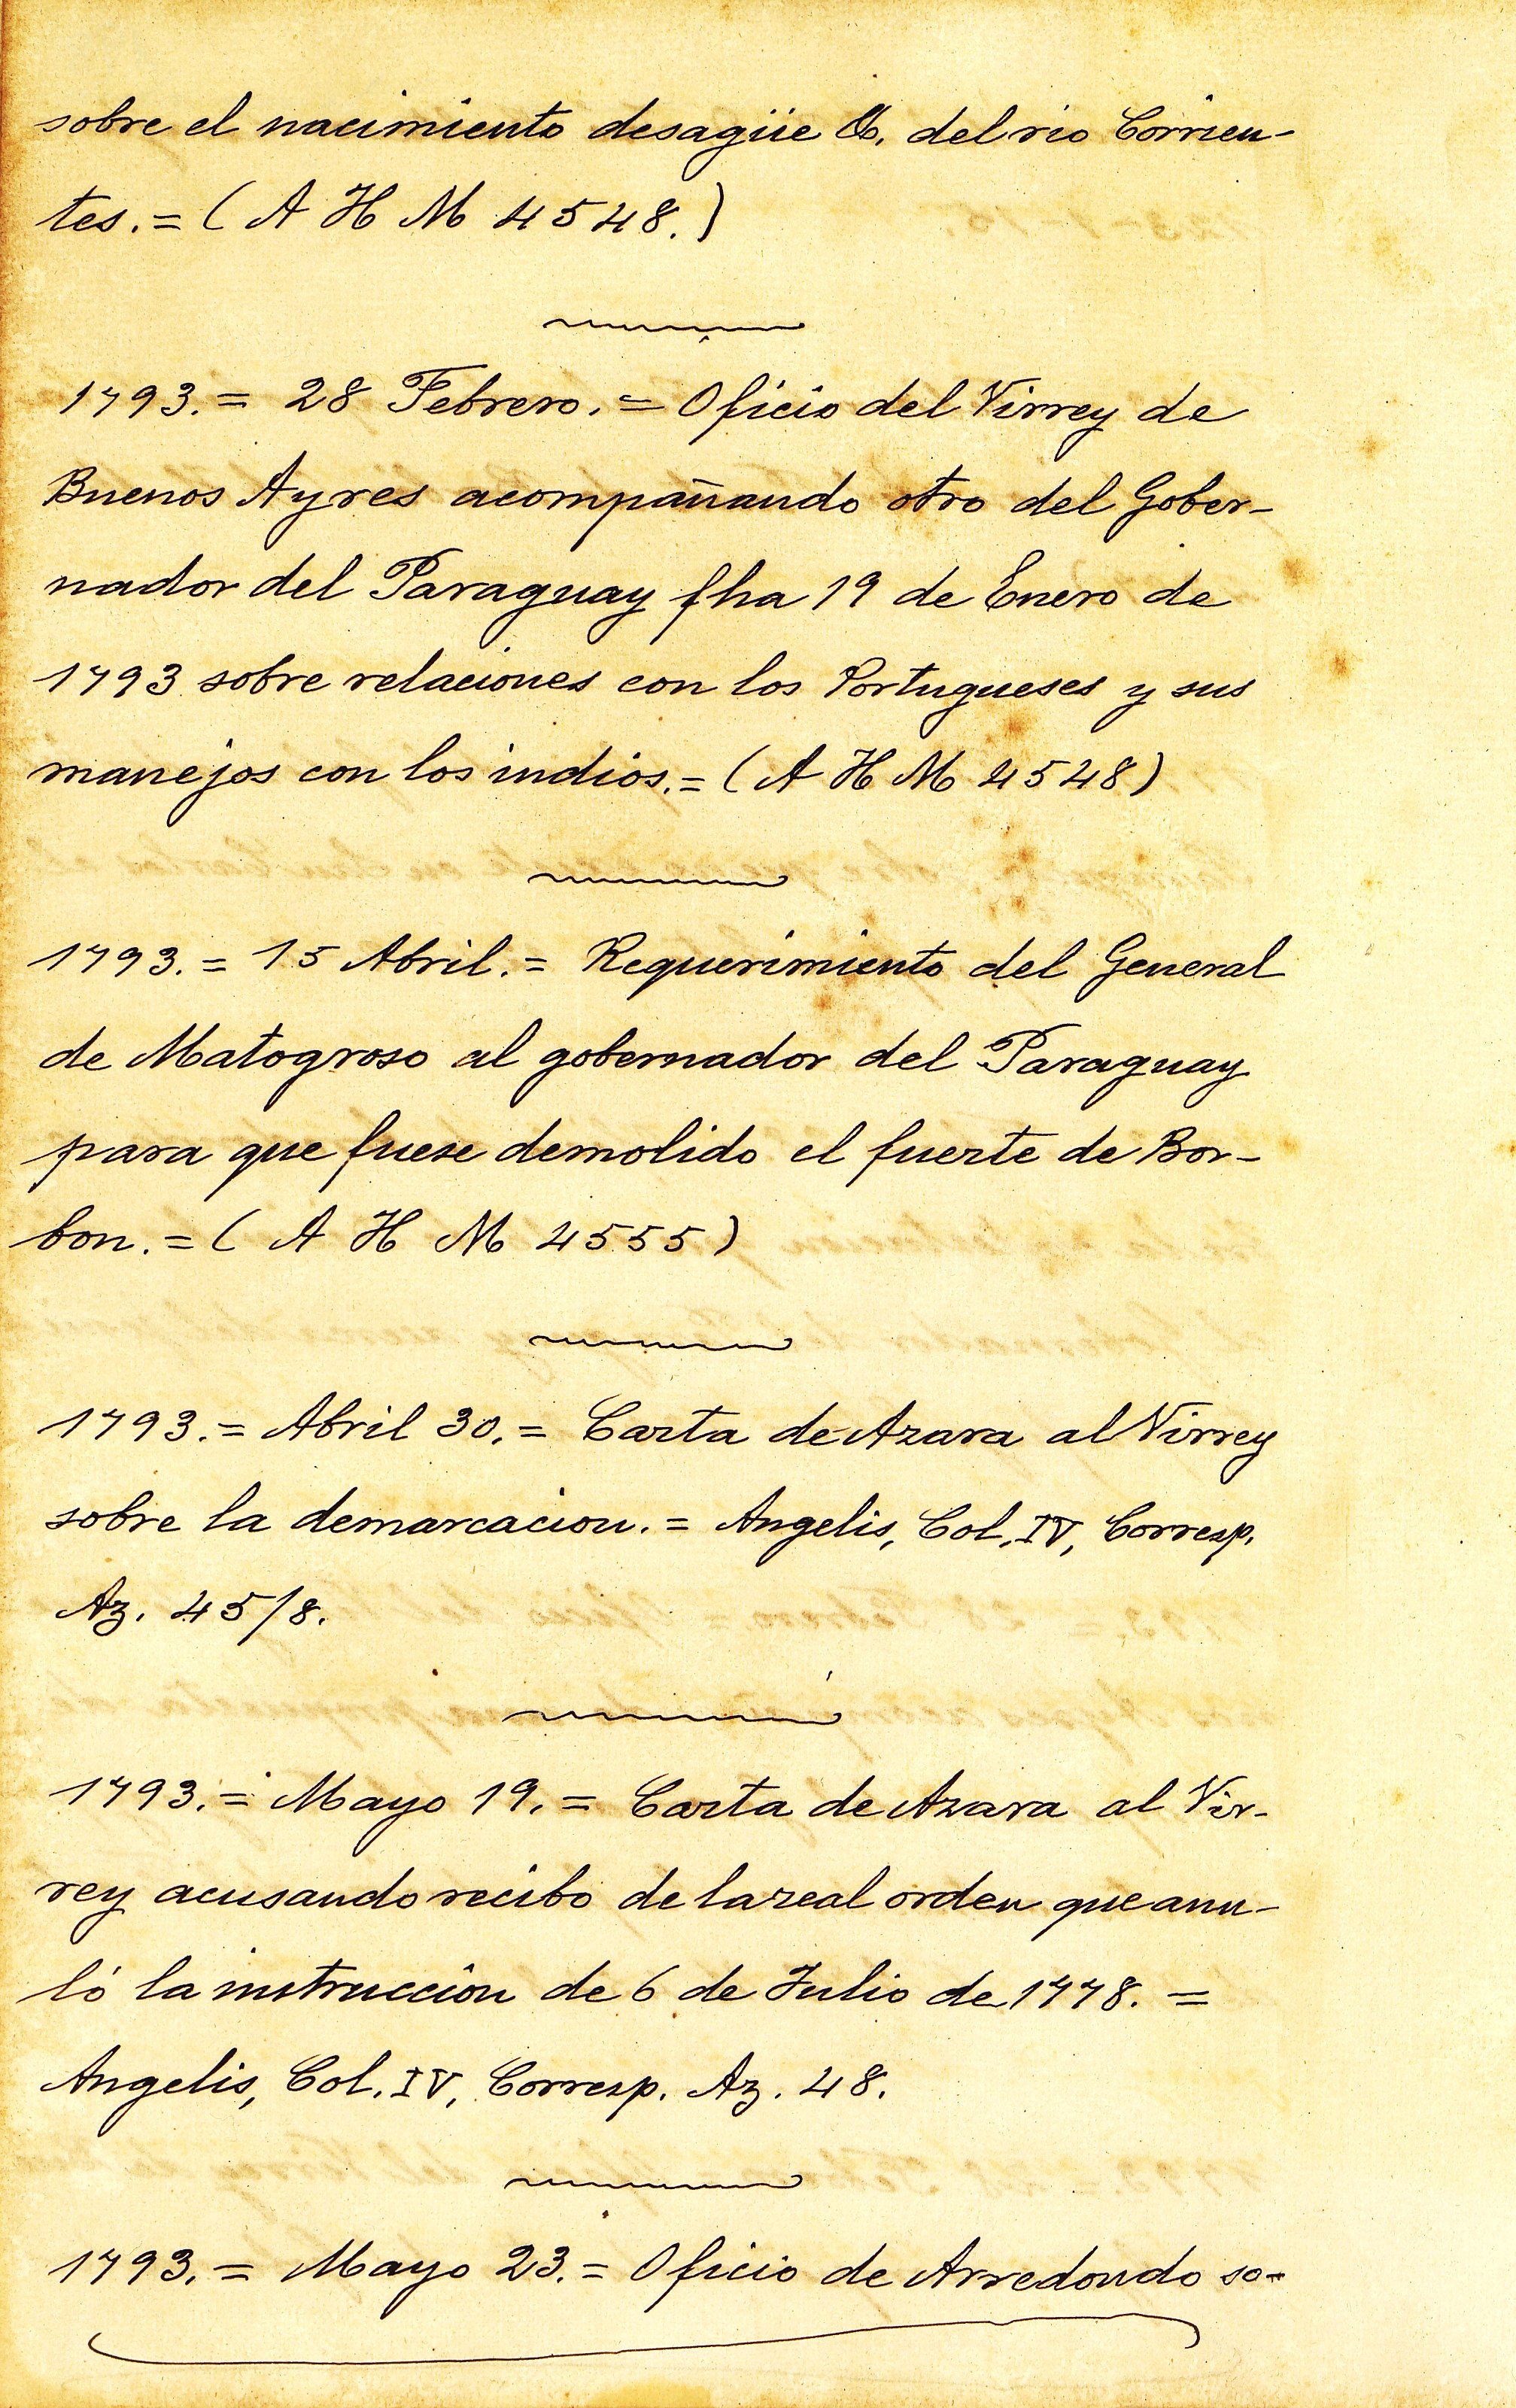 sobre el nacimiento desagüe &. del rio Corrien-
tes. = (A H M 4548.)
1793. = 28 Febrero. = Oficio del Virrey de
Buenos Ayres acompañando otro del Gober-
nador del Paraguay fha 19 de Enero de
1793 sobre relaciones con los Portugueses y sus
manejos con los indios. = (A H M 4548)
1793. = 15 Abril. = Requerimiento del General
de Matogroso al gobernador del Paraguay
para que fuese demolido el fuerte de Bor-
bon. = (A H M 4555)
1793. = Abril 30. = Carta de Azara al Virrey
sobre la demarcacion. = Angelis, Col. IV, Corresp.
Az. 45/8.
1793. = Mayo 19. = Carta de Azara al Vir-
rey acusando recibo de la real orden que anu-
ló la instruccion de 6 de Julio de 1778. =
Angelis, Col. IV, Corresp. Az. 48.
1793. = Mayo 23. = Oficio de Arredondo so-